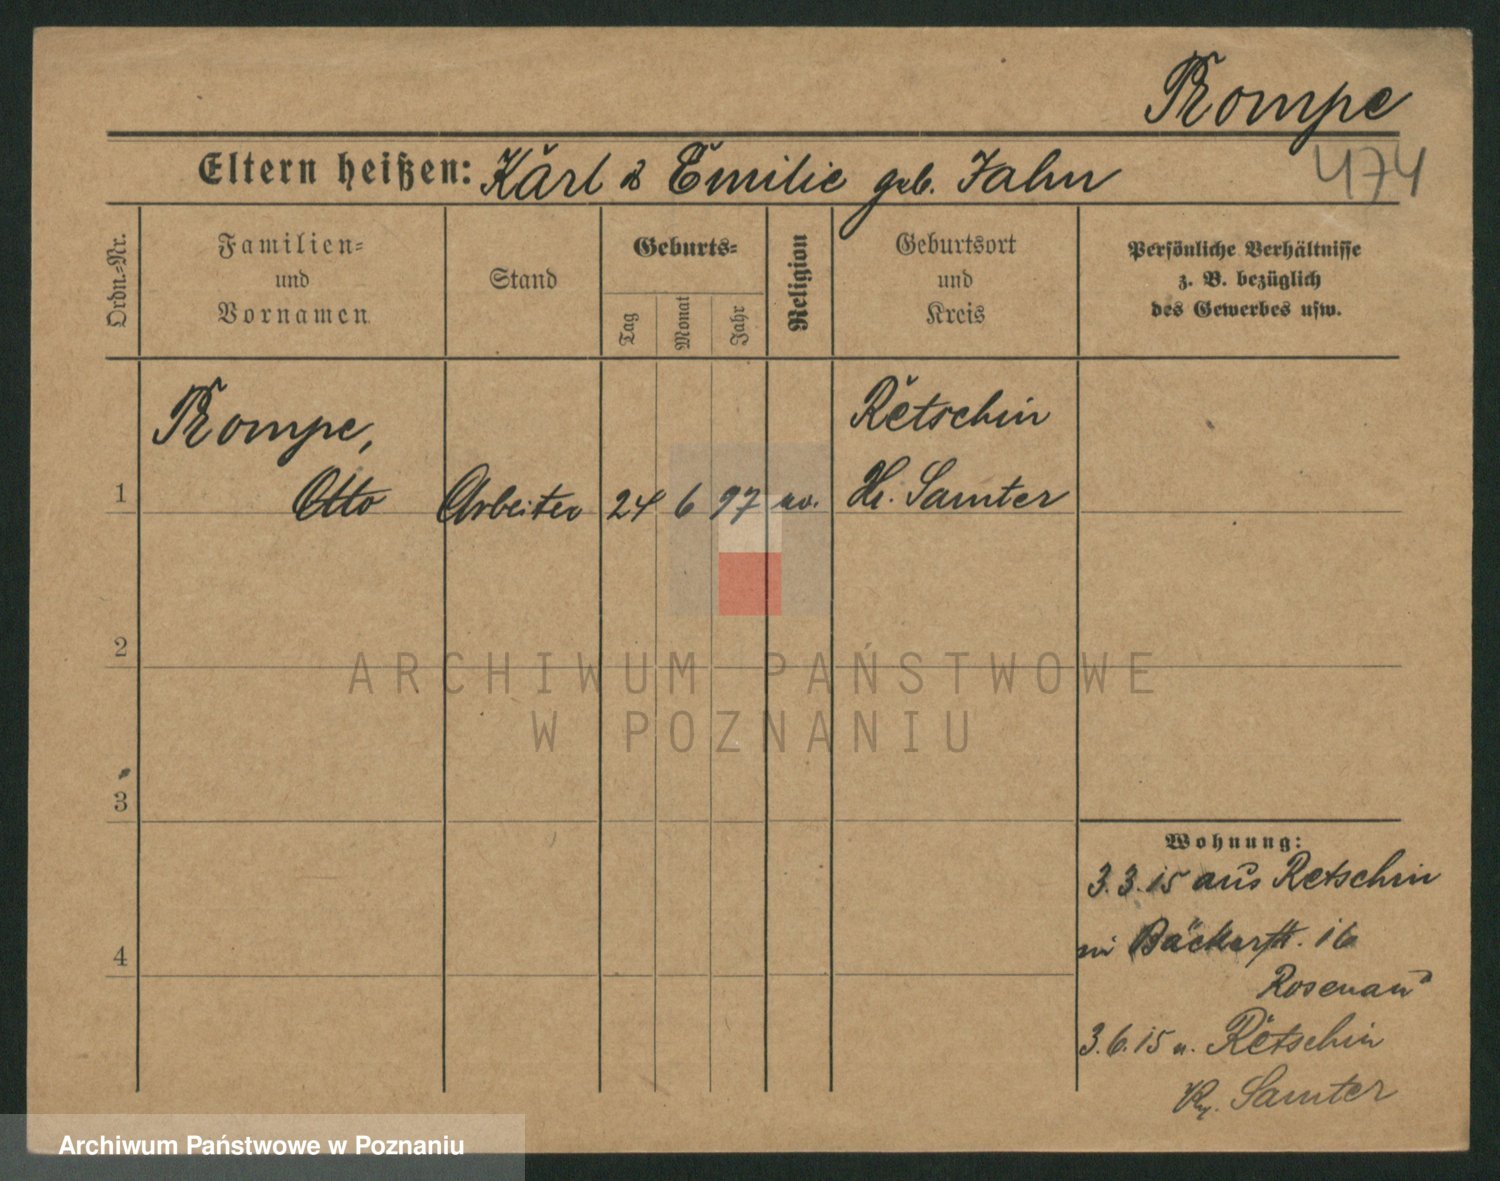 Rompe
Eltern heißen: Karl & Emilie geb. Jahn
474
Ordn.=Nr.
Familien=
und
Vornamen
Stand
Geburts=
Tag
Monat
Jahr
Religion
Geburtsort
und
Kreis
Persönliche Verhältnisse
z. B. bezüglich
des Gewerbes usw.
Rompe, Retschin
1 Otto Arbeiter 24 6 97 ev. Kr. Samter
2
3
4
Wohnung:
3.3.15 aus Retschin
Bäckerstr. 16
Rosenau
3.6.15 n. Retschin
Samter
ARCHIWUM PAŃSTWOWE
W POZNANIU
Archiwum Państwowe w Poznaniu